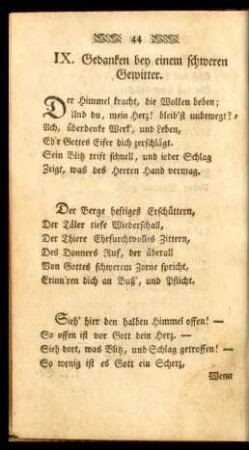 44
IX. Gedanken bey einem schweren
Gewitter.
Der Himmel kracht, die Wolken beben;
Und du, mein Herz! bleib'st unbewegt? -
Ach, überdenke Werk', und Leben,
Eh'r Gottes Eifer dich zerschlägt.
Sein Blitz trift schnell, und ieder Schlag
Zeigt, was des Herren Hand vermag.
Der Berge heftiges Erschüttern,
Der Täler tiefe Wiederschall,
Der Thiere Ehrfurchtvolles Zittern,
Des Donners Ruf, der überall
Von Gottes schwerem Zorne spricht,
Erinn'ren dich an Buß', und Pflicht.
Sieh' hier den halben Himmel offen! —
So offen ist vor Gott dein Herz. —
Sieh dort, was Blitz, und Schlag getroffen! —
So wenig ist es Gott ein Scherz,
Wenn